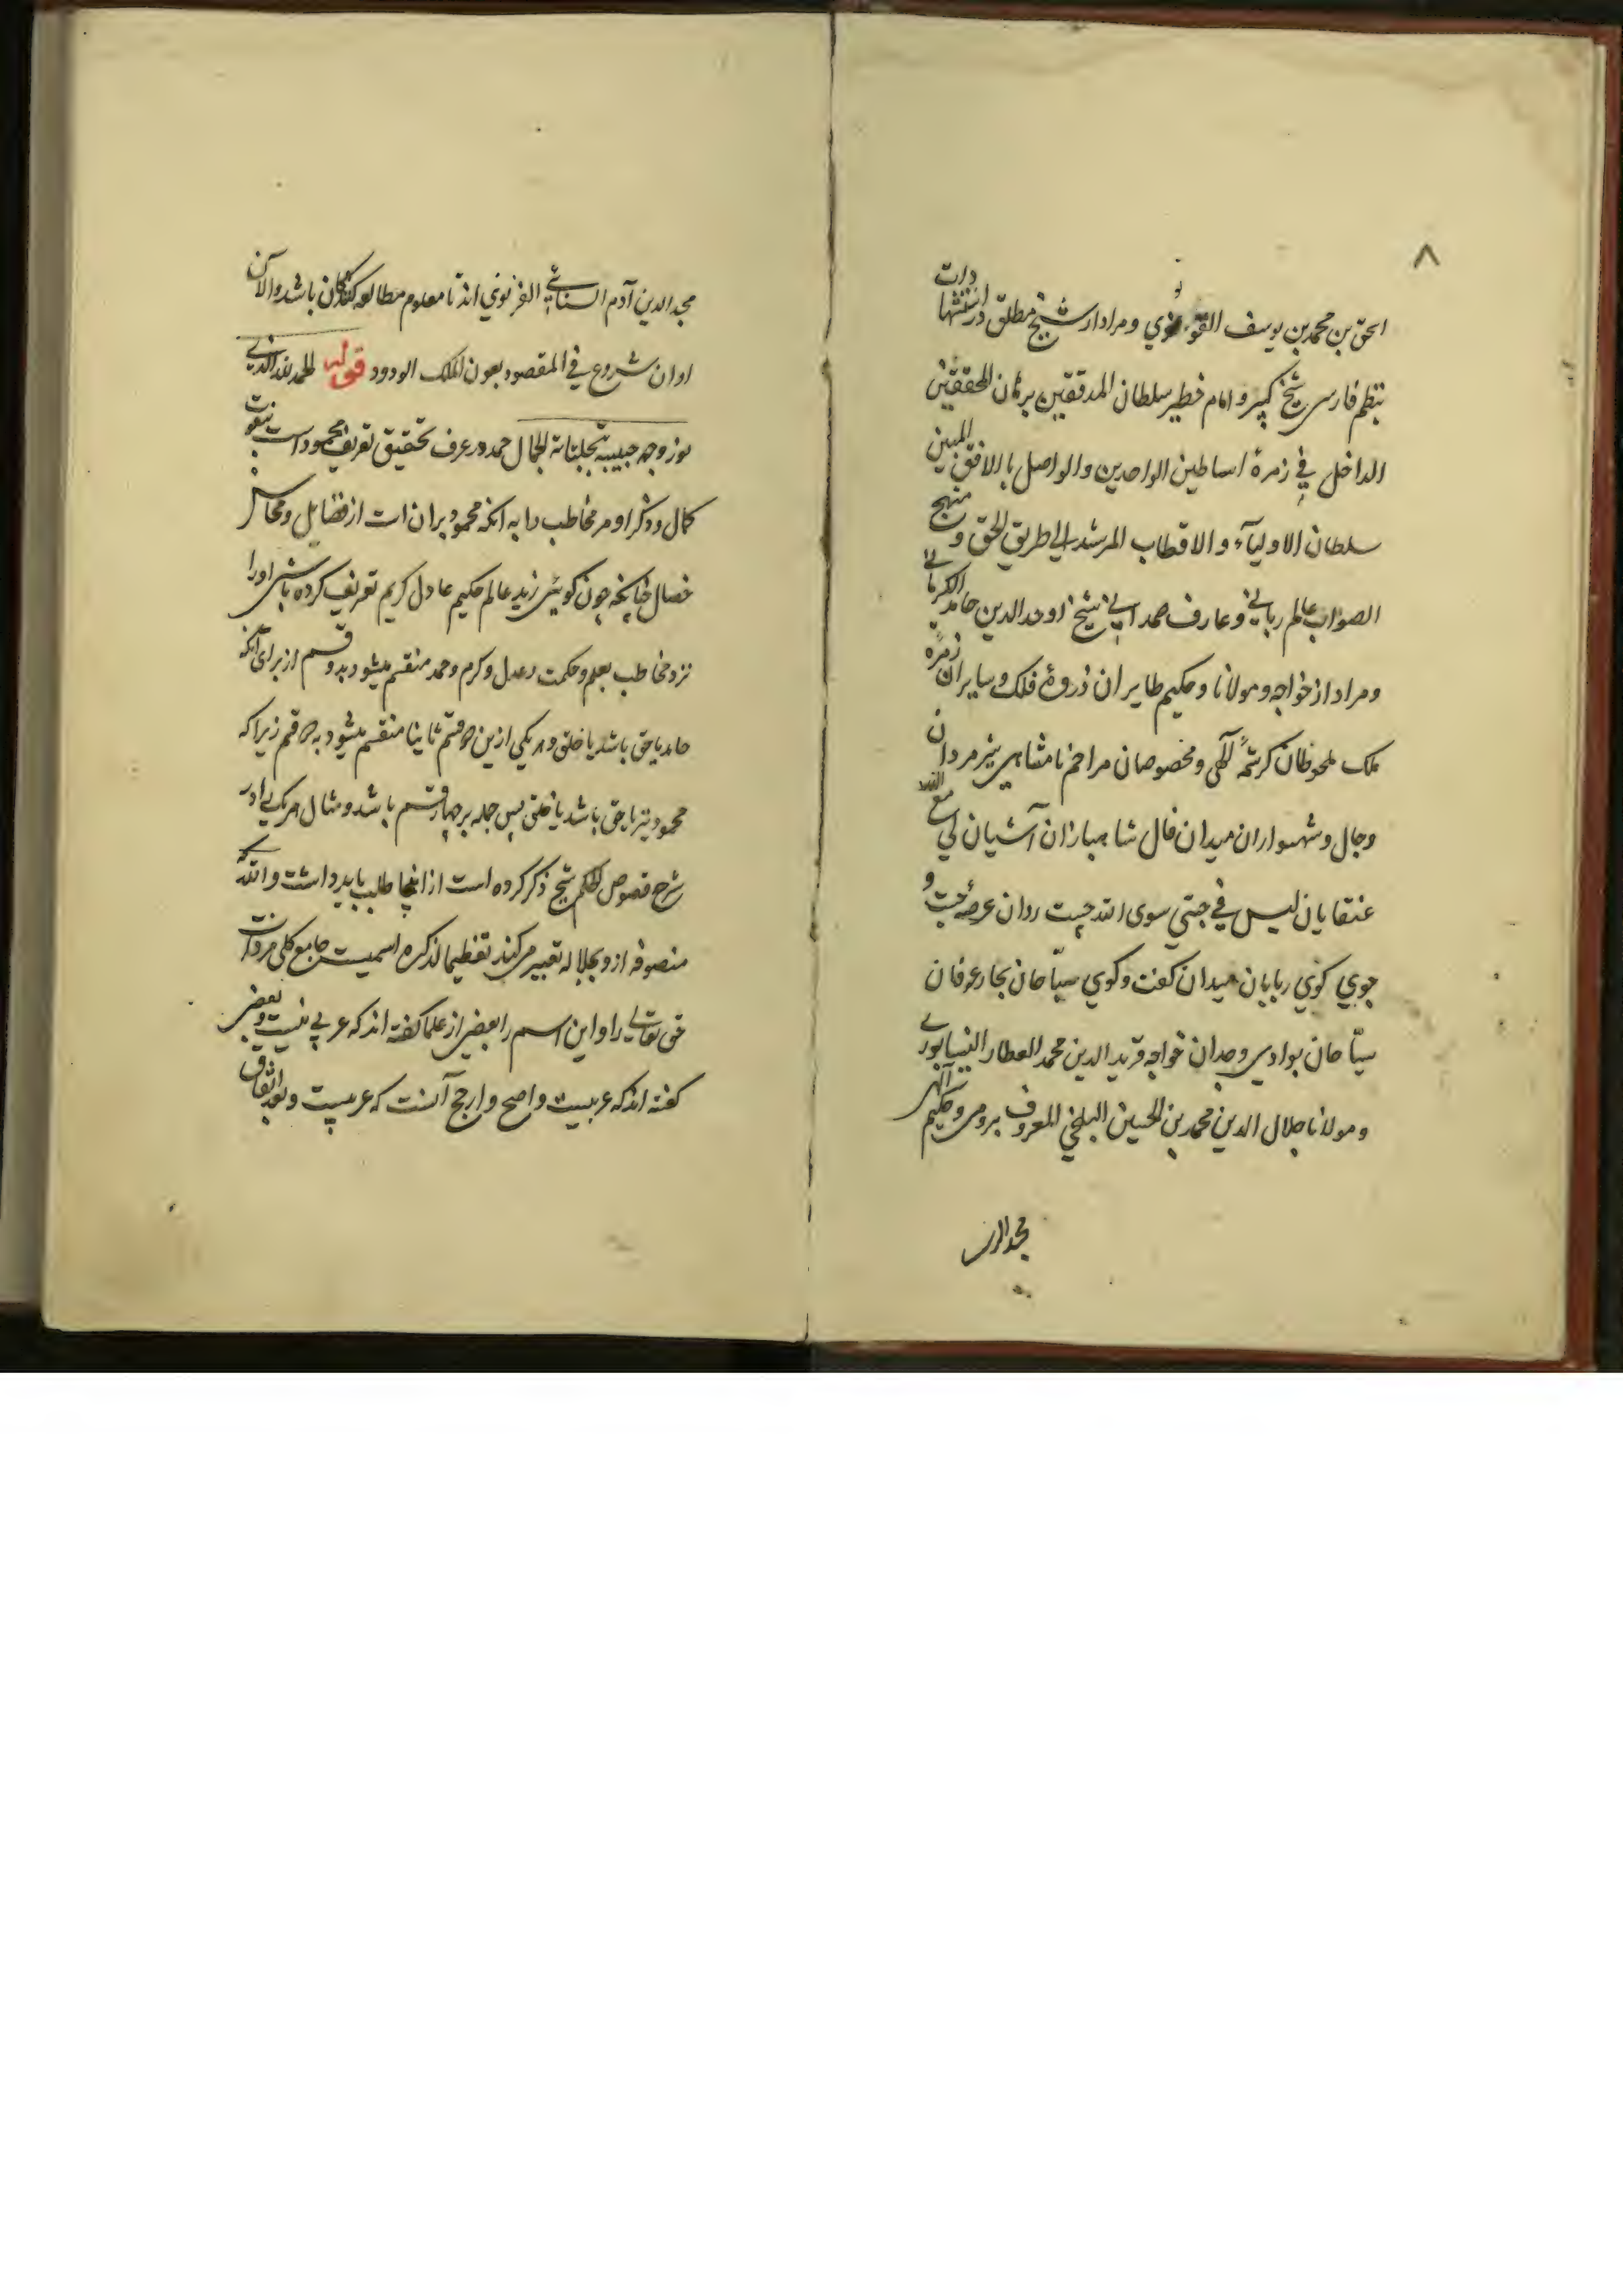 ۸
الحق بن محمد بن یوسف القونوي و مراد از شیخ مطلق در استشهادات
بنظم فارسی شیخ کبیر و امام خطیر سلطان المدققین برهان المحققین
الداخل في زمرة اساطین الواحدین والواصل بالافق المبین
سلطان الاولیآء والاقطاب المرشد الي طریق الحق و منهج
الصواب عالم رباني و عارف صمداني شیخ اوحد الدین حامد الکرماني
و مراد از خواجه و مولانا و حکیم طایران ذروهٔ فلک و سایران زمرهٔ
ملک ملحوظان کرشمهٔ آلهی و مخصوصان مراحم نامتناهی شیرمردان
وجال و شهسواران میدان قال شاهبازان آشیان لي مع الله
عنقایان لیس في جبتي سوی الله چست روان عرصهٔ جست و
جوي کوي ربایان میدان کفت و کوي سیّاحان بحار عرفان
سیّاحان بوادی وجدان خواجه فرید الدین محمد العطار النیسابوري
و مولانا جلال الدین محمد بن الحسین البلخي المعروف برومی و حکیم آلهی
مجد الدین
مجد الدین آدم السنائي الغزنوي اند تا معلوم مطالعه کنندکان باشد والآن
اوان شروع في المقصود بعون الملک الودود قوله الحمد لله الذي
نور وجه حبیبه بتجلیات الجمال حمد در عرف تحقیق تعریف محمود است بنعوت
کمال و ذکر او مر مخاطب را به آنکه محمود بران است از فضایل و محاسن
خصال چنانچه چون کوئی زید عالم حکیم عادل کریم تعریف کرده باشی اورا
نزد مخاطب بعلم و حکمت و عدل و کرم و حمد منقسم میشود بدو قسم از برای آنکه
حامد یا حق باشد یا خلق و هر یکی ازین دو قسم ثانیا منقسم میشود به دو قسم زیرا که
محمود نیز یا حق باشد یا خلق پس جمله بر چهار قسم باشد و مثال هر یک را در
شرح فصوص الحکم شیخ ذکر کرده است از انجا طلب باید داشت و الله که
متصوفه ازو بجلاله تعبیر می کنند تعظیما لذکره اسمیست جامع کلی مر ذات
حق تعالي را و این اسم را بعضی از علما کفته اند که عربي نیست و بعضی
کفته اند که عربیست و اصح و ارجح آنست که عربیست و بعد اتفاق